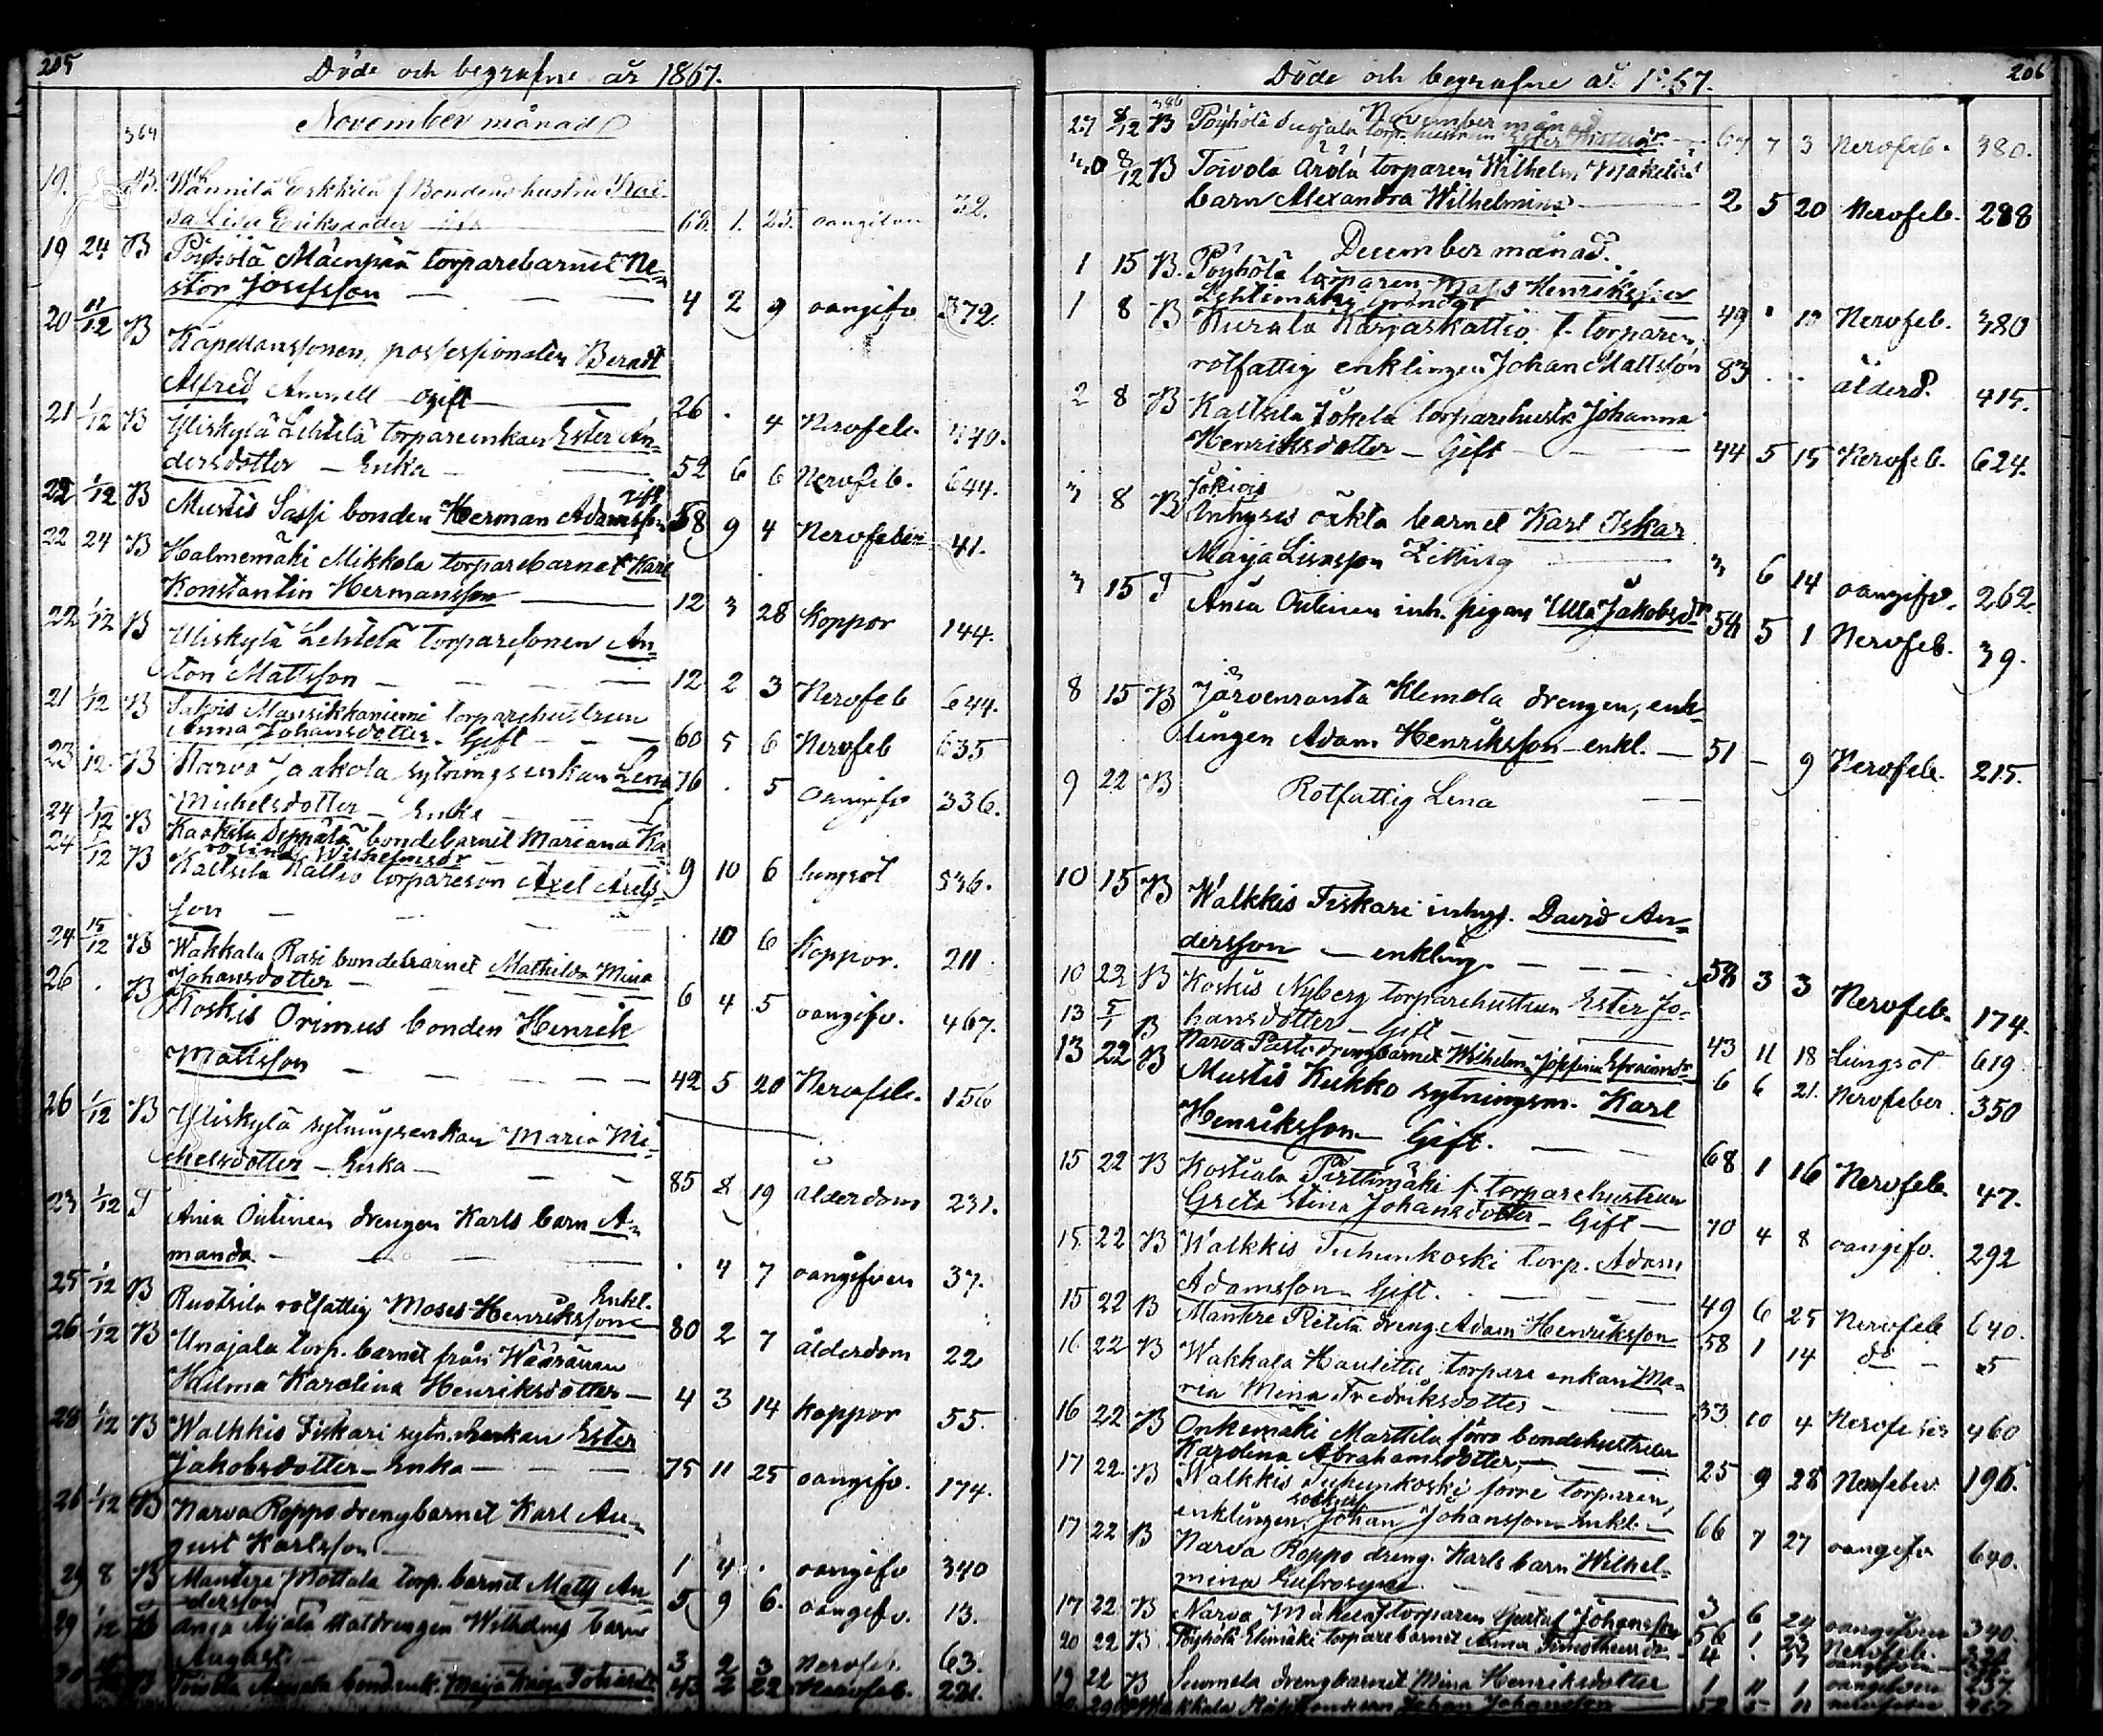 205
Döde och begrafne år 1867.
November månad
364
19. 43. Wännilä Erkkilä f Bondens hustru Kai-
sa Lisa Eriksdotter 68. 1. 25. oangifven 32.
19 24 B Pöyhölä Mäenpää torparebarnet Ne-
stor Josefsson — 4 2 9 oangifv. 372.
20 11/12 B Kapellanssonen, possessionaten Berndt
Alfred Amnell ogift — 26 . 4 Nervfeb. 440.
21 1/12 B Yliskylä Lehtilä torpareenkan Ester An-
dersdotter — Enka — 52 6 6 Nervfeb. 644.
22 1/12 B Mustis Sassi bonden Herman Adamsson gift 58 9 4 Nervfeber 41.
22 24 B Halmemäki Mikkola torparebarnet Karl
Konstantin Hermansson — 12 3 28 Koppor 144.
22 1/12 B Yliskylä Lehtilä torparesonen An-
ton Mattsson — 12 2 3 Nervfeb 644.
21 1/12 B Salois Mansikkaniemi torparehustrun
Anna Johansdotter. Gift — 60 5 6 Nervfeb 635
23 1/12 B Narva Jaakola sytningsenkan Lena
Michelsdotter — Enka 76 . 5 Oangifv 336.
24 1/12 B Kaakila Seppälä bondebarnet Mariana Ka-
rolina Wilhelmsdr 9 10 6 lungsot 536.
24 1/12 B Kaltsila Kallio torpareson Axel Axels-
son — . 10 6 Koppor. 211.
24 15/12 B Wahkala Rasi bondebarnet Mathilda Mina
Johansdotter — 6 4 5 oangifv. 467.
26 . B Koskis Orimus bonden Henrik
Mattsson — 42 5 20 Nervfeb. 156
26 1/12 B Yliskylä sytningsenkan Maria Mi-
chelsdotter — Enka — 85 8 19 ålderdom 231.
23 1/12 T Ania Outinen drengen Karls barn A-
manda — . 4 7 oangifven 37.
25 1/12 B Ruotsila rotfattig Moses Henriksson Enkl. 80 2 7 ålderdom 22
26 1/12 B Unajala torp. barnet från
Hilma Karolina Henriksdotter — 4 3 14 koppor 55.
28 1/12 B Walkkis Fiskari sytn. enkan Ester
Jakobsdotter — Enka — 75 11 25 oangifv. 174.
26 1/12 B Narva Roppo drengbarnet Karl Au-
gust Karlsson — 1 4 . oangifv 340
29 8 B Mantere Mottala torp. barnet Matts An-
dersson 5 9 6. oangifv. 13.
29 1/12 B Anja Äijälä statdrengen Wilhelms barn
August. — 3 2 3 Nervfeb. 63.
30 B Toivola bond. enk. Maja Kaisa 45 2 22 Nervfeb. 221.
206
Döde och begrafne år 1867.
November mån
386
27 8/12 B Pöyhölä torp. hustrun Ester 67 7 3 Nervfeb. 380.
30 8/12 B Toivola Arola torparen Wilhelm Mäkeläs
barn Alexandra Wilhelmina — 2 5 20 Nervfeb. 288
December månad.
1 15 B. Pöyhölä torparen Matts Henriksson
Lehtimäki 49 . 10 Nervfeb. 380
1 8 B Kurala Karjaskallio f. torparen,
rotfattig enklingen Johan Mattsson 83 . . ålderd. 415.
2 8 B Kaltsila Jokela torparehustr. Johanna
Henriksdotter — Gift — 44 5 15 Nervfeb. 624.
3 8 B Jokiois
Inhyses oäkta barnet Karl Oskar
Maija Liisasson — 3 6 14 oangifv. 262
3 15 T Ania Outinen inh. pigan Ulla Jakobsdr 58 5 1 Nervfeb. 39.
8 15 B Järvenranta Klemola drengen, enk-
lingen Adam Henriksson — enkl. — 51 — 9 Nervfeb. 215.
9 22 B Rotfattig Lena —
10 15 B Walkkis Fiskari inhys. David An-
dersson — enkling. — 58 3 3 Nervfeb. 174.
10 22 B Koskis Nyberg torparehustrun Ester Jo-
hansdotter — Gift — 43 11 18 Lungsot 619
13 B Narva Perti drengbarnet Wilhelm. Josefina Efraimsdr 6 6 21. Nervfeber. 350
13 22 B Mustis Kukko sytningsm. Karl
Henriksson — Gift. — 68 1 16 Nervfeb. 47.
15 22 B Koskiala Pirttimäki f. torparehustrun
Greta Stina Johansdotter — Gift — 70 4 8 oangifv. 292
15 22 B Walkkis Tuhunkoski torp. Adam
Adamsson — Gift. — 49 6 25 Nervfeb 640.
15 22 B Mantere Pietilä dreng Adam Henriksson 58 1 14 do — 5
16 22 B Wahkala torpare enkan Ma-
ria Mina Fredriksdotter — 33 10 4 Nervfeber 460
16 22 B Onkemäki Marttila förra bondehustrun
Karolina Abrahamsdotter, — 25 9 28 Nervfeber 196.
17 22. B Walkkis Tuhunkoski förre torparen,
enklingen Johan Johansson — enkl. — 66 7 27 oangifv 640.
17 22 B Narva Roppo dreng. Karls barn Wilhel-
mina Eufrosyne — 3 6 24 oangifven 340.
17 22 B Narva Mäkelä f. torparen Gustaf Johansson 56 1 23 Nervfeb.
20 22 B Pöyhölä Elimäki torparebarnet Anna 4 . oangifven
19 22 B Suomela drengbarnet Mina Henriksdotter 1 11 1 oangifven 237
Wahkala bonden Johan Johansson 52 5 11 nervfeber 467